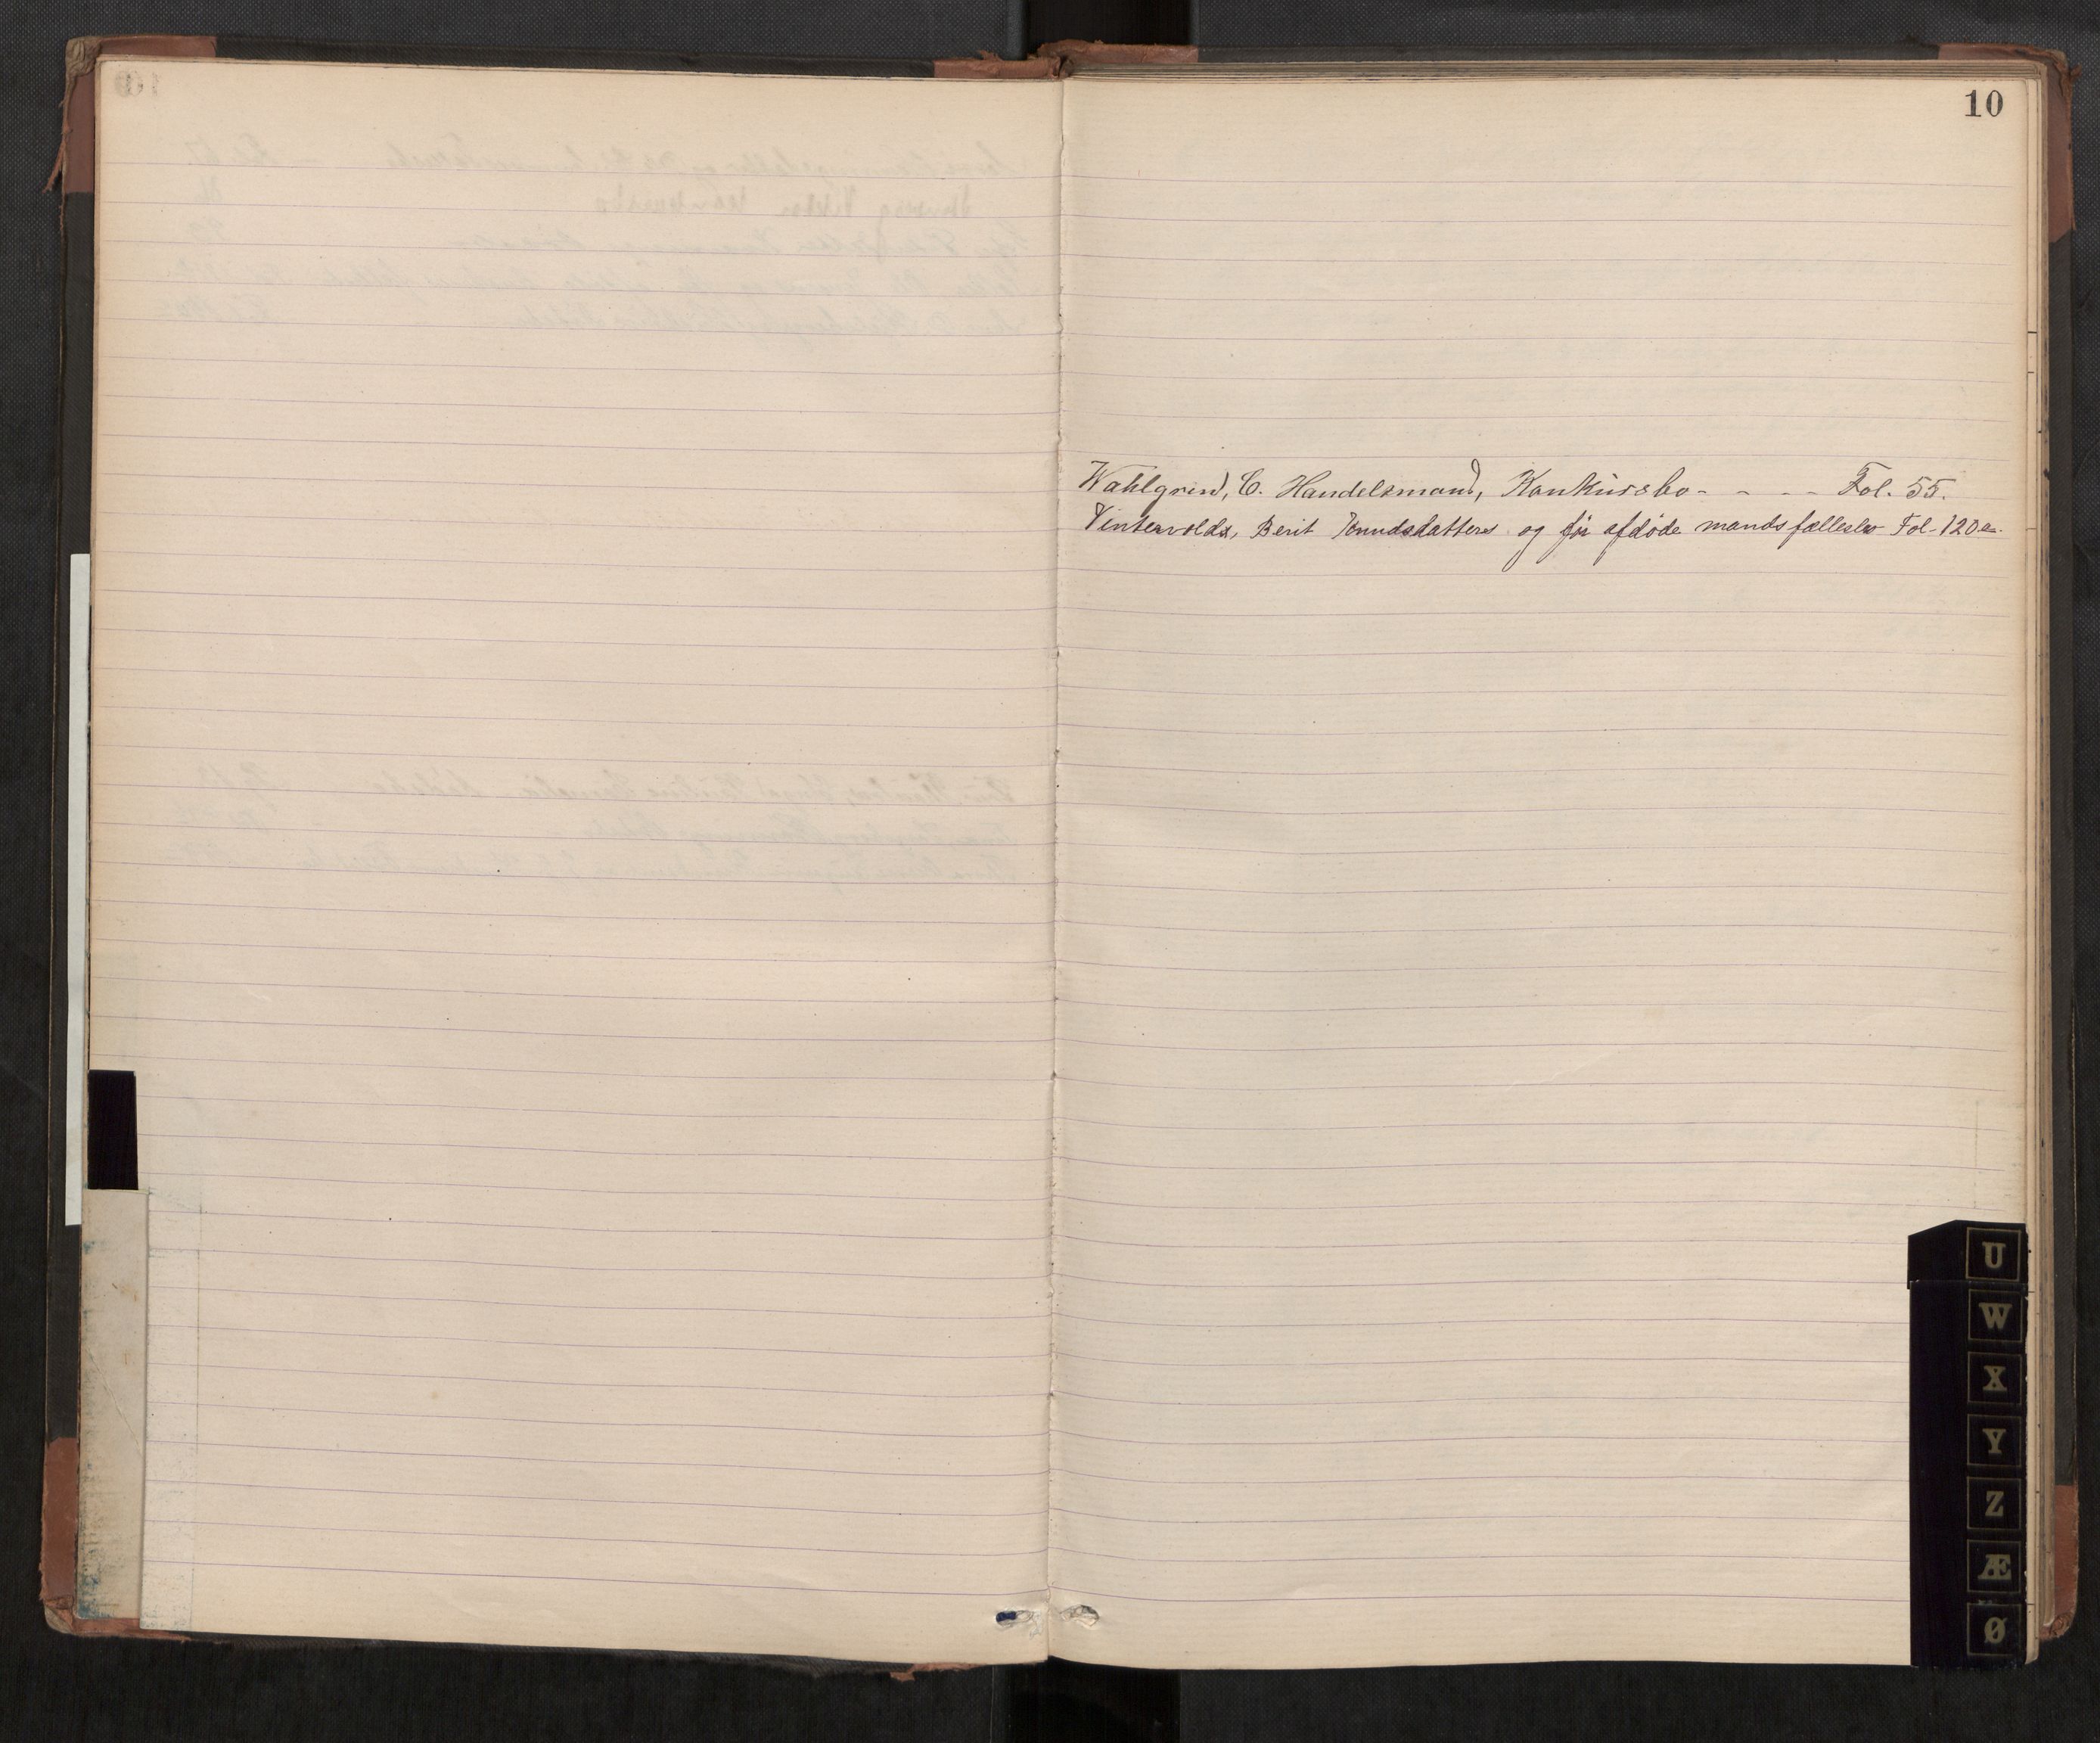 10
Wahlgren, C. Handelsmand, Konkursbo - - - - Fol. 55.
Vintervolds, Berit Knudsdatters og før afdøde mands fællesbo Fol. 120a.
U
W
X
Y
Z
Æ
Ø